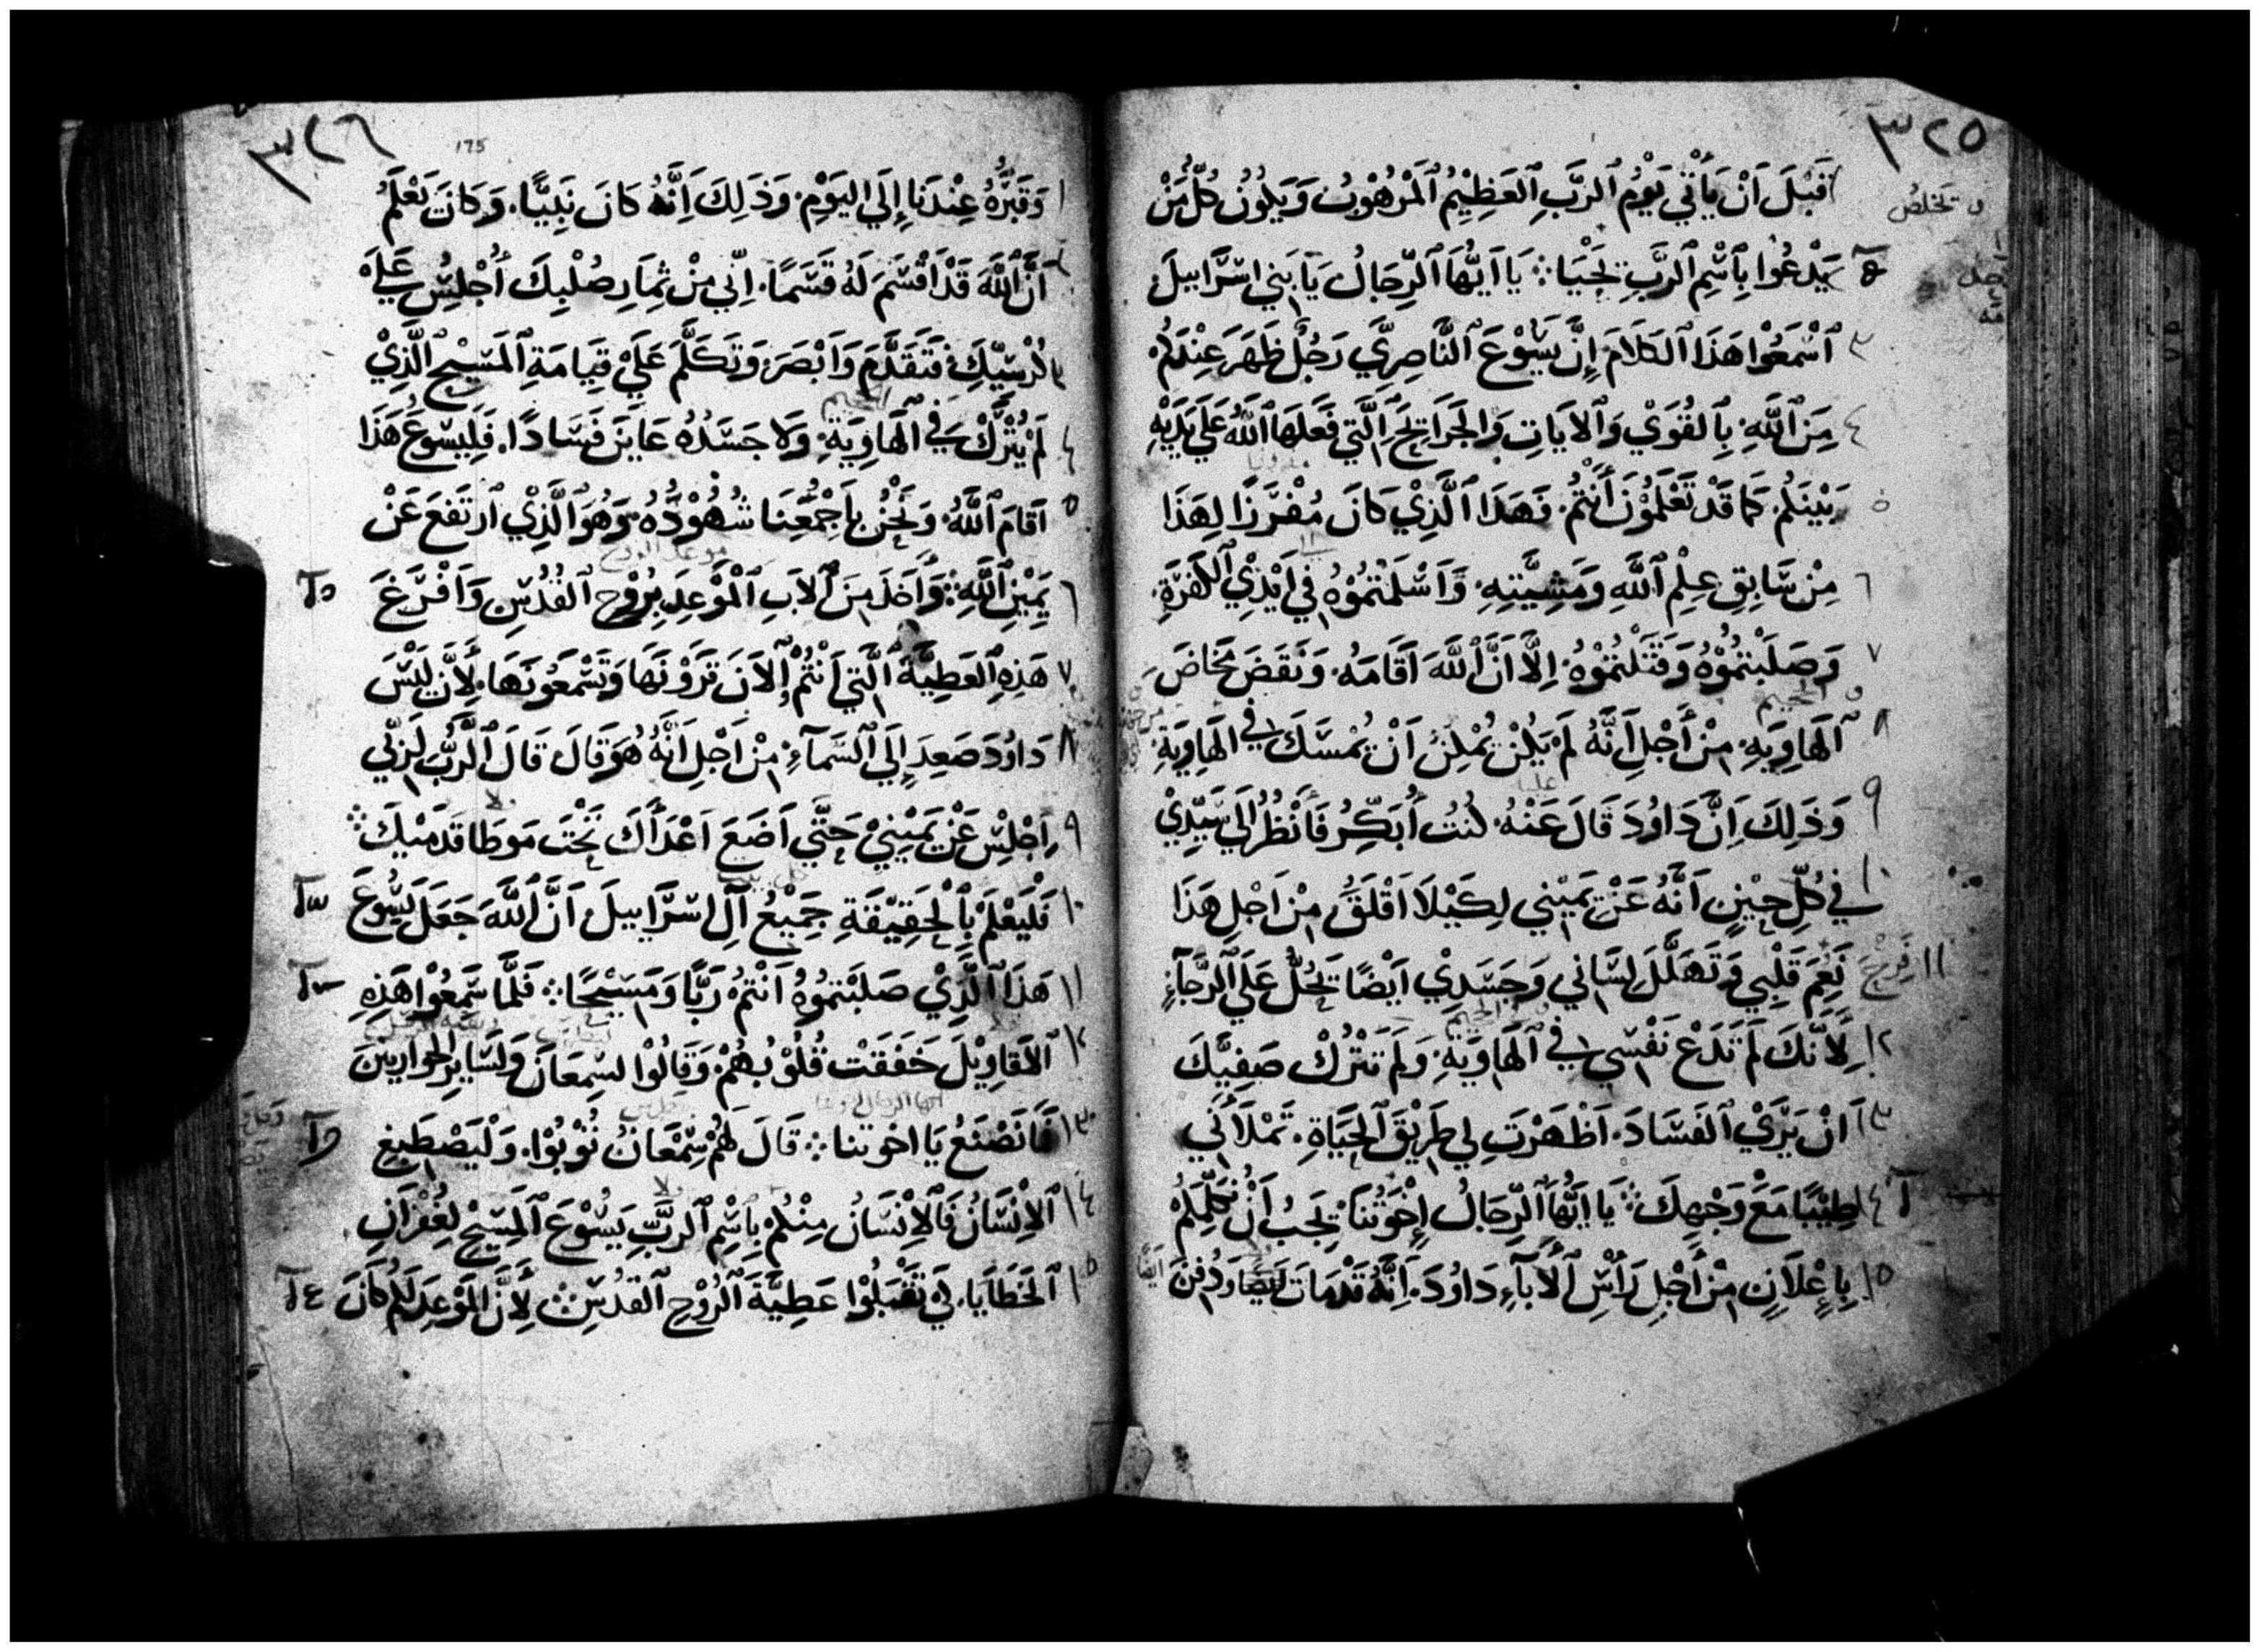 ٣٢٥
قَبْلَ اَنْ يَأْتِيَ يَوْمُ ٱلرَّبِ ٱلعَظِيْمُ ٱلمَرْهُوْبُ وَيَكُوْنُ كُلُّ مَنْ
يَدْعُوْا بِٱسْمِ ٱلرَّبِ يَحْيَا ۞ يَا اَيُّهَا ٱلرِّجَالُ يَا بَنِي اسْرَاييلَ
٣ ٱسْمَعُوْا هَذَا ٱلكَلَامَ إِنَّ يَسُوْعَ ٱلنَّاصِرِيَّ رَجُلٌ ظَهَرَ عِنْدَكُم
٤ مِنَ ٱللَّهِ بِٱلقُوَيْ وَٱلايَاتِ وَٱلجَرَايِحِ ٱلَّتِي فَعَلَهَا ٱللَّهُ عَلَي يَدَيْهِ
٥ بَيْنَكُم كَمَا قَدْ تَعْلَمُوْنَ أَنْتُمْ فَهَذَا ٱلَّذِيْ كَانَ مُفْرَزًا لِهَذَا
٦ مِنْ سَابِقِ عِلْمِ ٱللَّهِ وَمَشِيَّتِهِ وَاَسْلَمْتُمُوْهُ فِي اَيْدِي ٱلكَفَرَةِ
٧ وَصَلَبْتُمُوْهُ وَقَتَلْتُمُوْهُ اِلَّا اَنَّ ٱللَّهَ اَقَامَهُ وَنَقَضَ مَخَاضَ
٨ ٱلهَاوِيَةِ مِنْ أَجْلِ اَنَّهُ لَمْ يَكُنْ يُمْكِنُ اَنْ يُمْسَكَ فِي الهَاوِيَةِ
٩ وَذَلِكَ اِنَّ دَاوُدَ قَالَ عَنْهُ كُنْتُ أُبَكِّرُ فَأَنْظُرُ اِلَي سَيِّدِيْ
١٠ فِي كُلِّ حِيْنٍ اَنَّهُ عَنْ يَمِيْنِي لِكَيْلَا اَقْلَقَ مِنْ اَجْلِ هَذَا
١١ نَعِمَ قَلْبِي وَتَهَلَّلَ لِسَانِي وَجَسَدِيْ اَيْضًا يَحُلُّ عَلَي ٱلرَّجَآءِ
١٢ لِاَنَّكَ لَمْ تَدَعْ نَفْسِي فِي ٱلهَاوِيَةِ وَلَمْ تَتْرُكْ صَفِيَّكَ
١٣ اَنْ يَرَيْ ٱلفَسَادَ اَظْهَرْتَ لِي طَرِيْقَ ٱلحَيَاةِ تَمْلَأُنِي
١٤ طِيْبًا مَعَ وَجْهِكَ ۞ يَا اَيُّهَا ٱلرِّجَالُ إِخْوَتُنَا يَجِبُ اَنْ نُكَلِّمَكُمْ
١٥ بِإِعْلَانٍ مِنْ أَجْلِ رَأْسِ ٱلأَبآءِ دَاوُدَ اَنَّهُ قَدْ مَاتَ اَيضًا وَدُفِنَ
٣٢٦
175
١ وَقَبْرُهُ عِنْدَنَا إِلَي اليَوْمِ وَذَلِكَ اَنَّهُ كَانَ نَبِيًّا وَكَانَ يَعْلَمُ
٢ اَنَّ ٱللَّهَ قَدْ اَقْسَمَ لَهُ قَسَمًا اِنِّي مِنْ ثِمَارِ صُلْبِكَ أُجْلِسُ عَلَي
٣ كُرْسِيِّكَ فَتَقَدَّمَ وَاَبْصَرَ وَتَكَلَّمَ عَلَيْ قِيَامَةِ ٱلمَسِيْحِ ٱلَّذِيْ
٤ لَمْ يُتْرَكْ فِي ٱلهَاوِيَةِ وَلا جَسَدُهُ عَايَنَ فَسَادًا فَلِيَسُوعَ هَذَا
٥ اَقَامَ ٱللَّهُ وَنَحْنُ بِاَجْمُعِنَا شُهُوْدُهُ وَهُوَ ٱلَّذِيْ ٱرتَفَعَ عَنْ
٦ يَمِيْنِ ٱللَّهِ وَأَخَذَ مِنَ ٱلابِ ٱلمَوْعِدِ بِرُوْحِ ٱلقُدُسِ وَاَفْرَغَ
٧ هَذِهِ ٱلعَطِيَّةَ ٱلَّتِي اَنْتُمْ ٱلاَنَ تَرَوْنَهَا وَتَسْمَعُوْنَهَا لِأَنَّ لَيْسَ
٨ دَاوُدَ صَعِدَ إِلَي ٱلسَّمَآءِ مِنْ اَجْلِ اَنَّهُ هُوَ قَالَ قَالَ ٱلرَّبُّ لِرَبِّي
٩ اِجْلِسْ عَنْ يَمِيْنِيْ حَتَّي اَضَعَ اَعْدَأَكَ تَحْتَ مَوطَا قَدَمَيْكَ ۞
١٠ فَلْيَعْلَمْ بِٱلحَقِيْقَةِ جَمِيْعُ آلِ اسْرَاييلَ اَنَّ ٱللَّهَ جَعَلَ يَسُوْعَ
١١ هَذَا ٱلَّذِيْ صَلَبْتُمُوْهُ اَنْتُمْ رَبًّا وَمَسِيْحًا ۞ فَلَمَّا سَمِعُوْا هَذِهِ
١٢ ٱلاَقَاوِيْلَ خَفَقَتْ قُلُوْبُهُمْ وَقَالُوْا لسِمعَانَ وَلسَايِرِ الحَوارِيينَ
١٣ مَا نَصْنَعُ يَا اخوتنا ۞ قَالَ لَهُمْ سِمْعَانُ تُوْبُوْا وَلْيَصْطَبِغِ
١٤ ٱلاِنْسَانُ فَٱلاِنْسَانُ مِنْكُمْ بِاسْمِ ٱلرَّبِّ يَسُوْعَ ٱلمَسِيْحِ لِغُفْرَانِ
١٥ ٱلخَطَايَا لِكَيْ تَقْبَلُوْا عَطِيَّةَ ٱلرُّوْحِ ٱلقدُسِ ۞ لِأَنَّ ٱلمَوْعِدَ لَكُمْ كَانَ